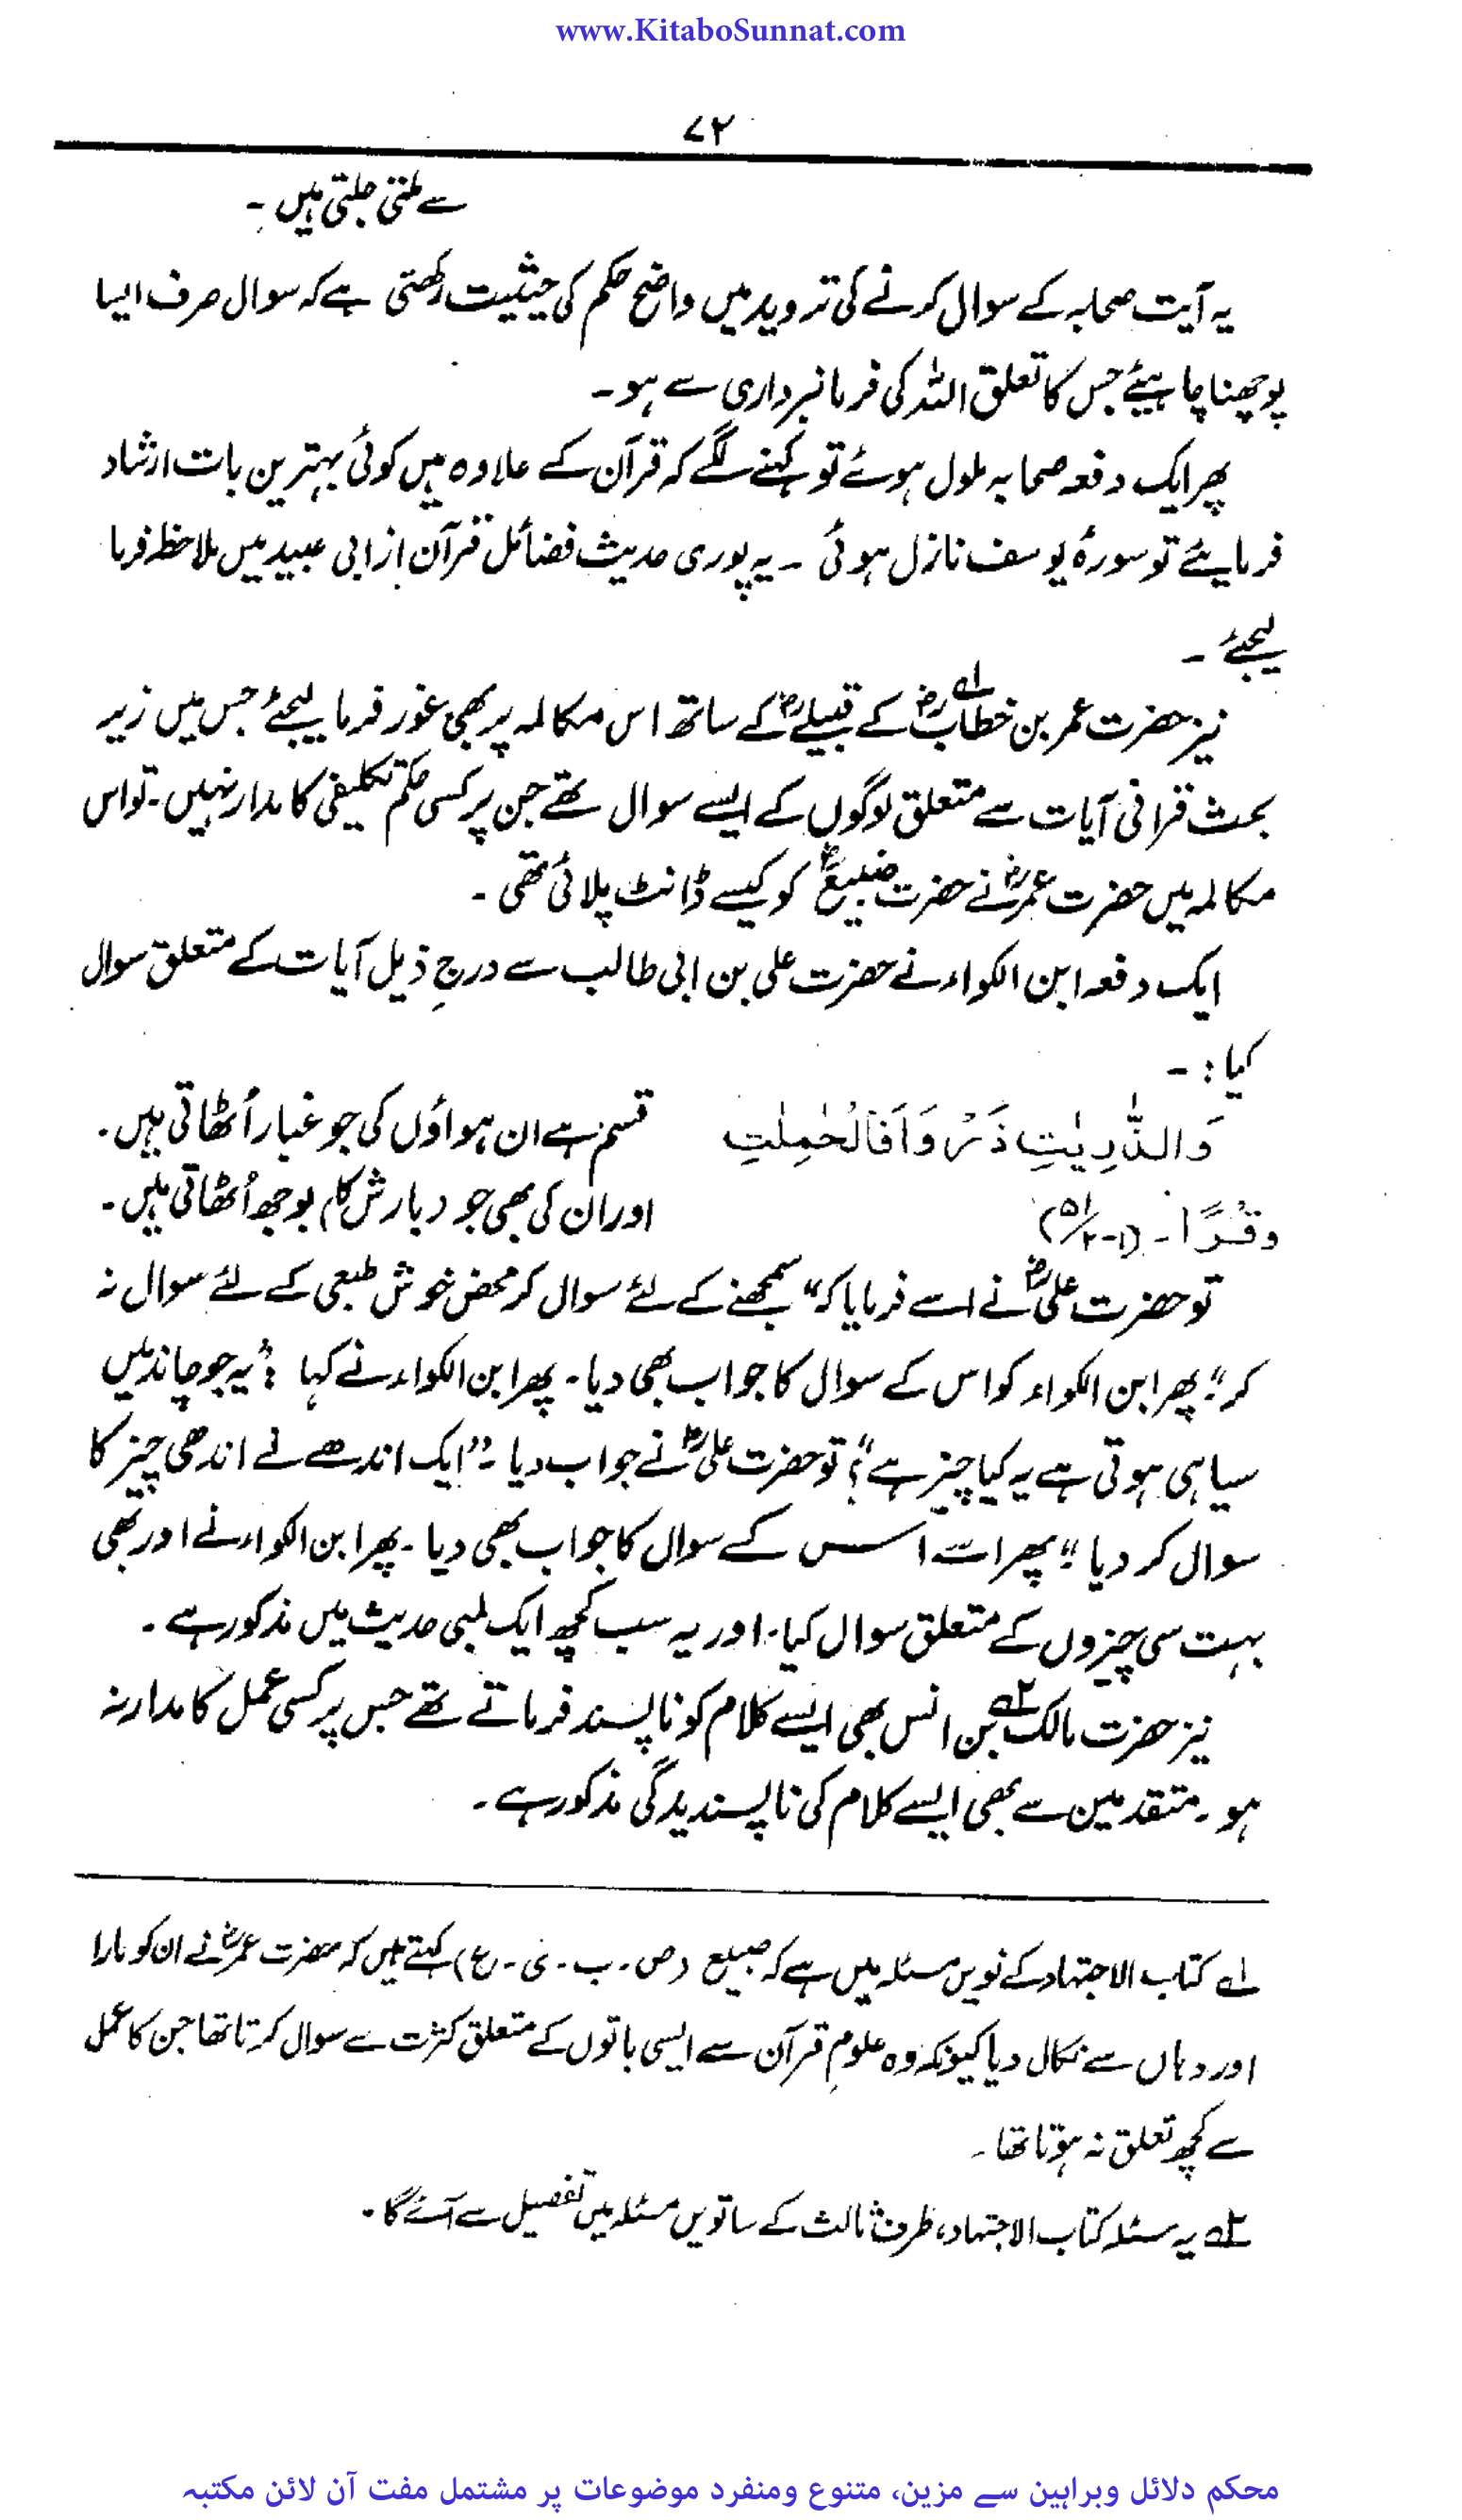 www.KitaboSunnat.com
۷۲
سے ملتی جلتی ہیں ۔
یہ آیت صحابہ کے سوال کرنے کی تردید میں واضح حکم کی حیثیت رکھتی ہے کہ سوال صرف ایسا
پوچھنا چاہیئے جس کا تعلق اللہ کی فرمانبرداری سے ہو ۔
پھر ایک دفعہ صحابہ ملول ہوئے تو کہنے لگے کہ قرآن کے علاوہ ہمیں کوئی بہترین بات ارشاد
فرمایئے تو سورۂ یوسف نازل ہوئی ۔ یہ پوری حدیث فضائل قرآن از ابی عبید میں ملاحظہ فرما
لیجئے ۔
نیز حضرت عمر بن خطابؓ لہ کے قبیلےؓ کے ساتھ اس مکالمہ پر بھی غور فرما لیجئے جس میں زیر
بحث قرانی آیات سے متعلق لوگوں کے ایسے سوال تھے جن پر کسی حکم تکلیفی کا مدار نہیں ۔ تو اس
مکالمہ میں حضرت عمرؓ نے حضرت ضبیعؓ کو کیسے ڈانٹ پلائی تھی ۔
ایک دفعہ ابن الکواء نے حضرت علی بن ابی طالب سے درجِ ذیل آیات کے متعلق سوال
کیا : ۔
وَالذّٰرِیٰتِ ذَرْوًا فَالْحٰمِلٰتِ قسم ہے ان ہواؤں کی جو غبار اُٹھاتی ہیں ۔
وِقْرًا ۔ (۱-۲/۵۱) اور ان کی بھی جو (بارش کا) بوجھ اُٹھاتی ہیں ۔
تو حضرت علیؓ نے اسے فرمایا کہ “ سمجھنے کے لئے سوال کر محض خوش طبعی کے لئے سوال نہ
کر “؛ پھر ابن الکواء کو اس کے سوال کا جواب بھی دیا ۔ پھر ابن الکواء نے کہا : “ یہ جو چاند میں
سیاہی ہوتی ہے یہ کیا چیز ہے “؟ تو حضرت علیؓ نے جواب دیا ۔ “ ایک اندھے نے اندھی چیز کا
سوال کر دیا “؛ پھر اسے اسس کے سوال کا جواب بھی دیا ۔ پھر ابن الکواء نے اور بھی
بہت سی چیزوں کے متعلق سوال کیا ۔ اور یہ سب کچھ ایک لمبی حدیث میں مذکور ہے ۔
نیز حضرت مالک ٢ہ بن انس بھی ایسے کلام کو ناپسند فرماتے تھے جس پر کسی عمل کا مدار نہ
ہو ۔ متقدمین سے بھی ایسے کلام کی ناپسندیدگی مذکور ہے ۔
لہ کتاب الاجتہاد کے نویں مسئلہ میں ہے کہ صبیع (ص ۔ ب ۔ ی ۔ ع) کہتے ہیں کہ حضرت عمرؓ نے ان کو مارا
اور وہاں سے نکال دیا کیونکہ وہ علومِ قرآن سے ایسی باتوں کے متعلق کثرت سے سوال کرتا تھا جن کا عمل
سے کچھ تعلق نہ ہوتا تھا ۔
٢ہ یہ مسئلہ کتاب الاجتہاد، طرف ثالث کے ساتویں مسئلہ میں تفصیل سے آئے گا ۔
محکم دلائل وبراہین سے مزین، متنوع ومنفرد موضوعات پر مشتمل مفت آن لائن مکتبہ